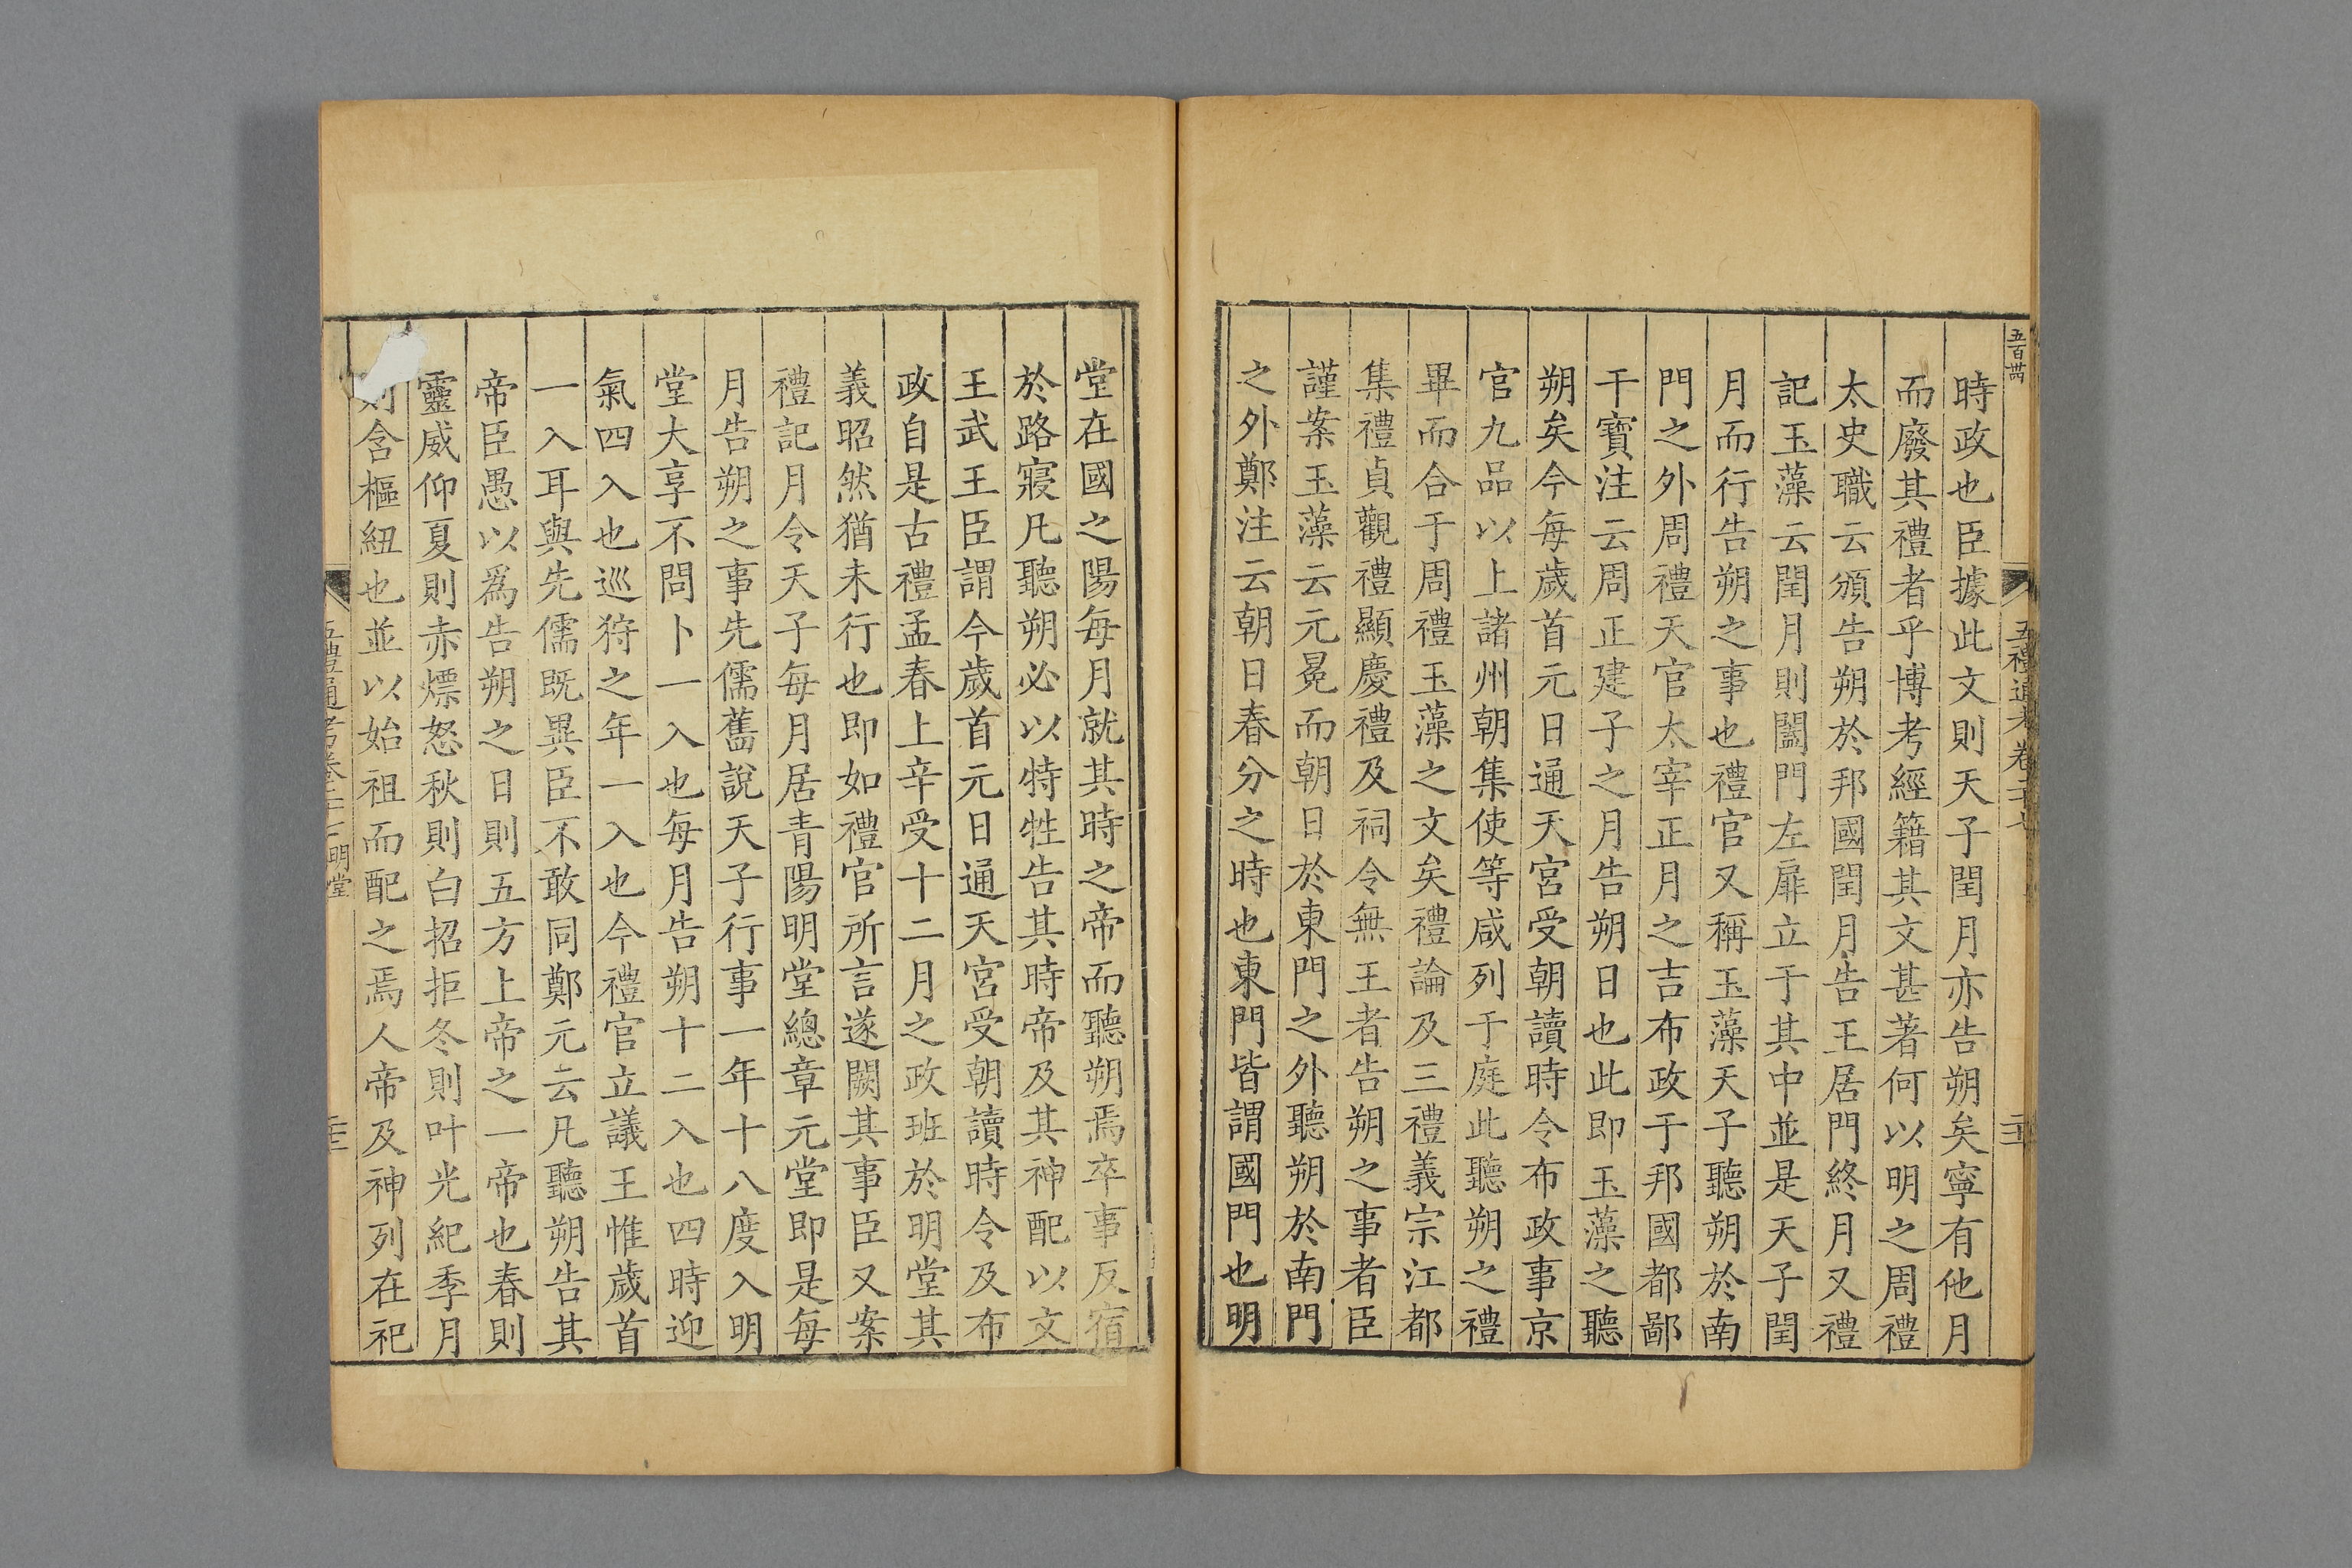 時政也臣據此文則天子閏月亦告朔矣寧有他月
而廢其禮者乎博考經籍其文甚著何以明之周禮
太史職云頒告朔於邦國閏月告王居門終月又禮
記玉藻云閏月則闔門左扉立于其中並是天子閏
月而行告朔之事也禮官又稱玉藻天子聽朔於南
門之外周禮天官太宰正月之吉布政于邦國都鄙
干寶注云周正建子之月告朔日也此即玉藻之聽
朔矣今每歲首元日通天宮受朝讀時令布政事京
官九品以上諸州朝集使等咸列于庭此聽朔之禮
畢而合于周禮玉藻之文矣禮論及三禮義宗江都
集禮貞觀禮顯慶禮及祠令無王者告朔之事者臣
謹案玉藻云元冕而朝日於東門之外聽朔於南門
之外鄭注云朝日春分之時也東門皆謂國門也明
堂在國之陽每月就其時之帝而聽朔焉卒事反宿
於路寢凡聽朔必以特牲告其時帝及其神配以文
王武王臣謂今歲首元日通天宮受朝讀時令及布
政自是古禮孟春上辛受十二月之政班於明堂其
義昭然猶未行也即如禮官所言遂闕其事臣又案
禮記月令天子每月居青陽明堂總章元堂即是每
月告朔之事先儒舊說天子行事一年十八度入明
堂大享不問卜一入也每月告朔十二入也四時迎
氣四入也巡狩之年一入也今禮官立議王惟歲首
一入耳與先儒既異臣不敢同鄭元云凡聽朔告其
帝臣愚以爲告朔之日則五方上帝之一帝也春則
靈威仰夏則赤熛怒秋則白招拒冬則叶光紀季月
則含樞紐也並以始祖而配之焉人帝及神列在祀
五禮通考卷二十 明堂